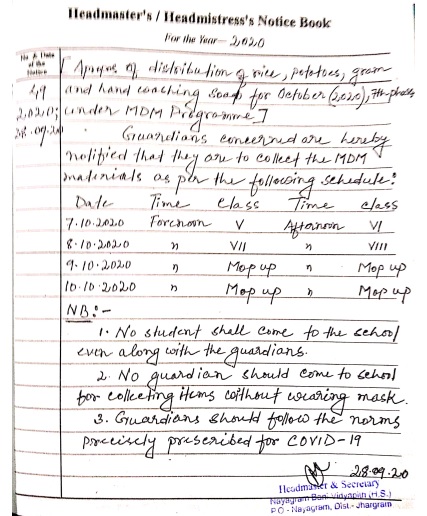 Headmaster's / Headmistress's Notice Book
For the Year— 2020
No & Date
of the
Notice
49
2020;
28.09.20
[Apropos of distribution of rice, potatoes, gram
and hand washing soap for October (2020), 7th phase
under MDM Programme]
Guardians concerned are hereby
notified that they are to collect the MDM
materials as per the following schedule:
Date Time Class Time Class
7.10.2020 Forenoon V Afternoon VI
8.10.2020 " VII " VIII
9.10.2020 " Mop up " Mop up
10.10.2020 " Mop up " Mop up
NB:-
1. No student shall come to the school
even along with the guardians.
2. No guardian should come to school
for collecting items without wearing mask.
3. Guardians should follow the norms
precisely prescribed for COVID-19
28.09.20
Headmaster & Secretary
Nayagram Bani Vidyapith (H.S.)
P.O - Nayagram, Dist.- Jhargram